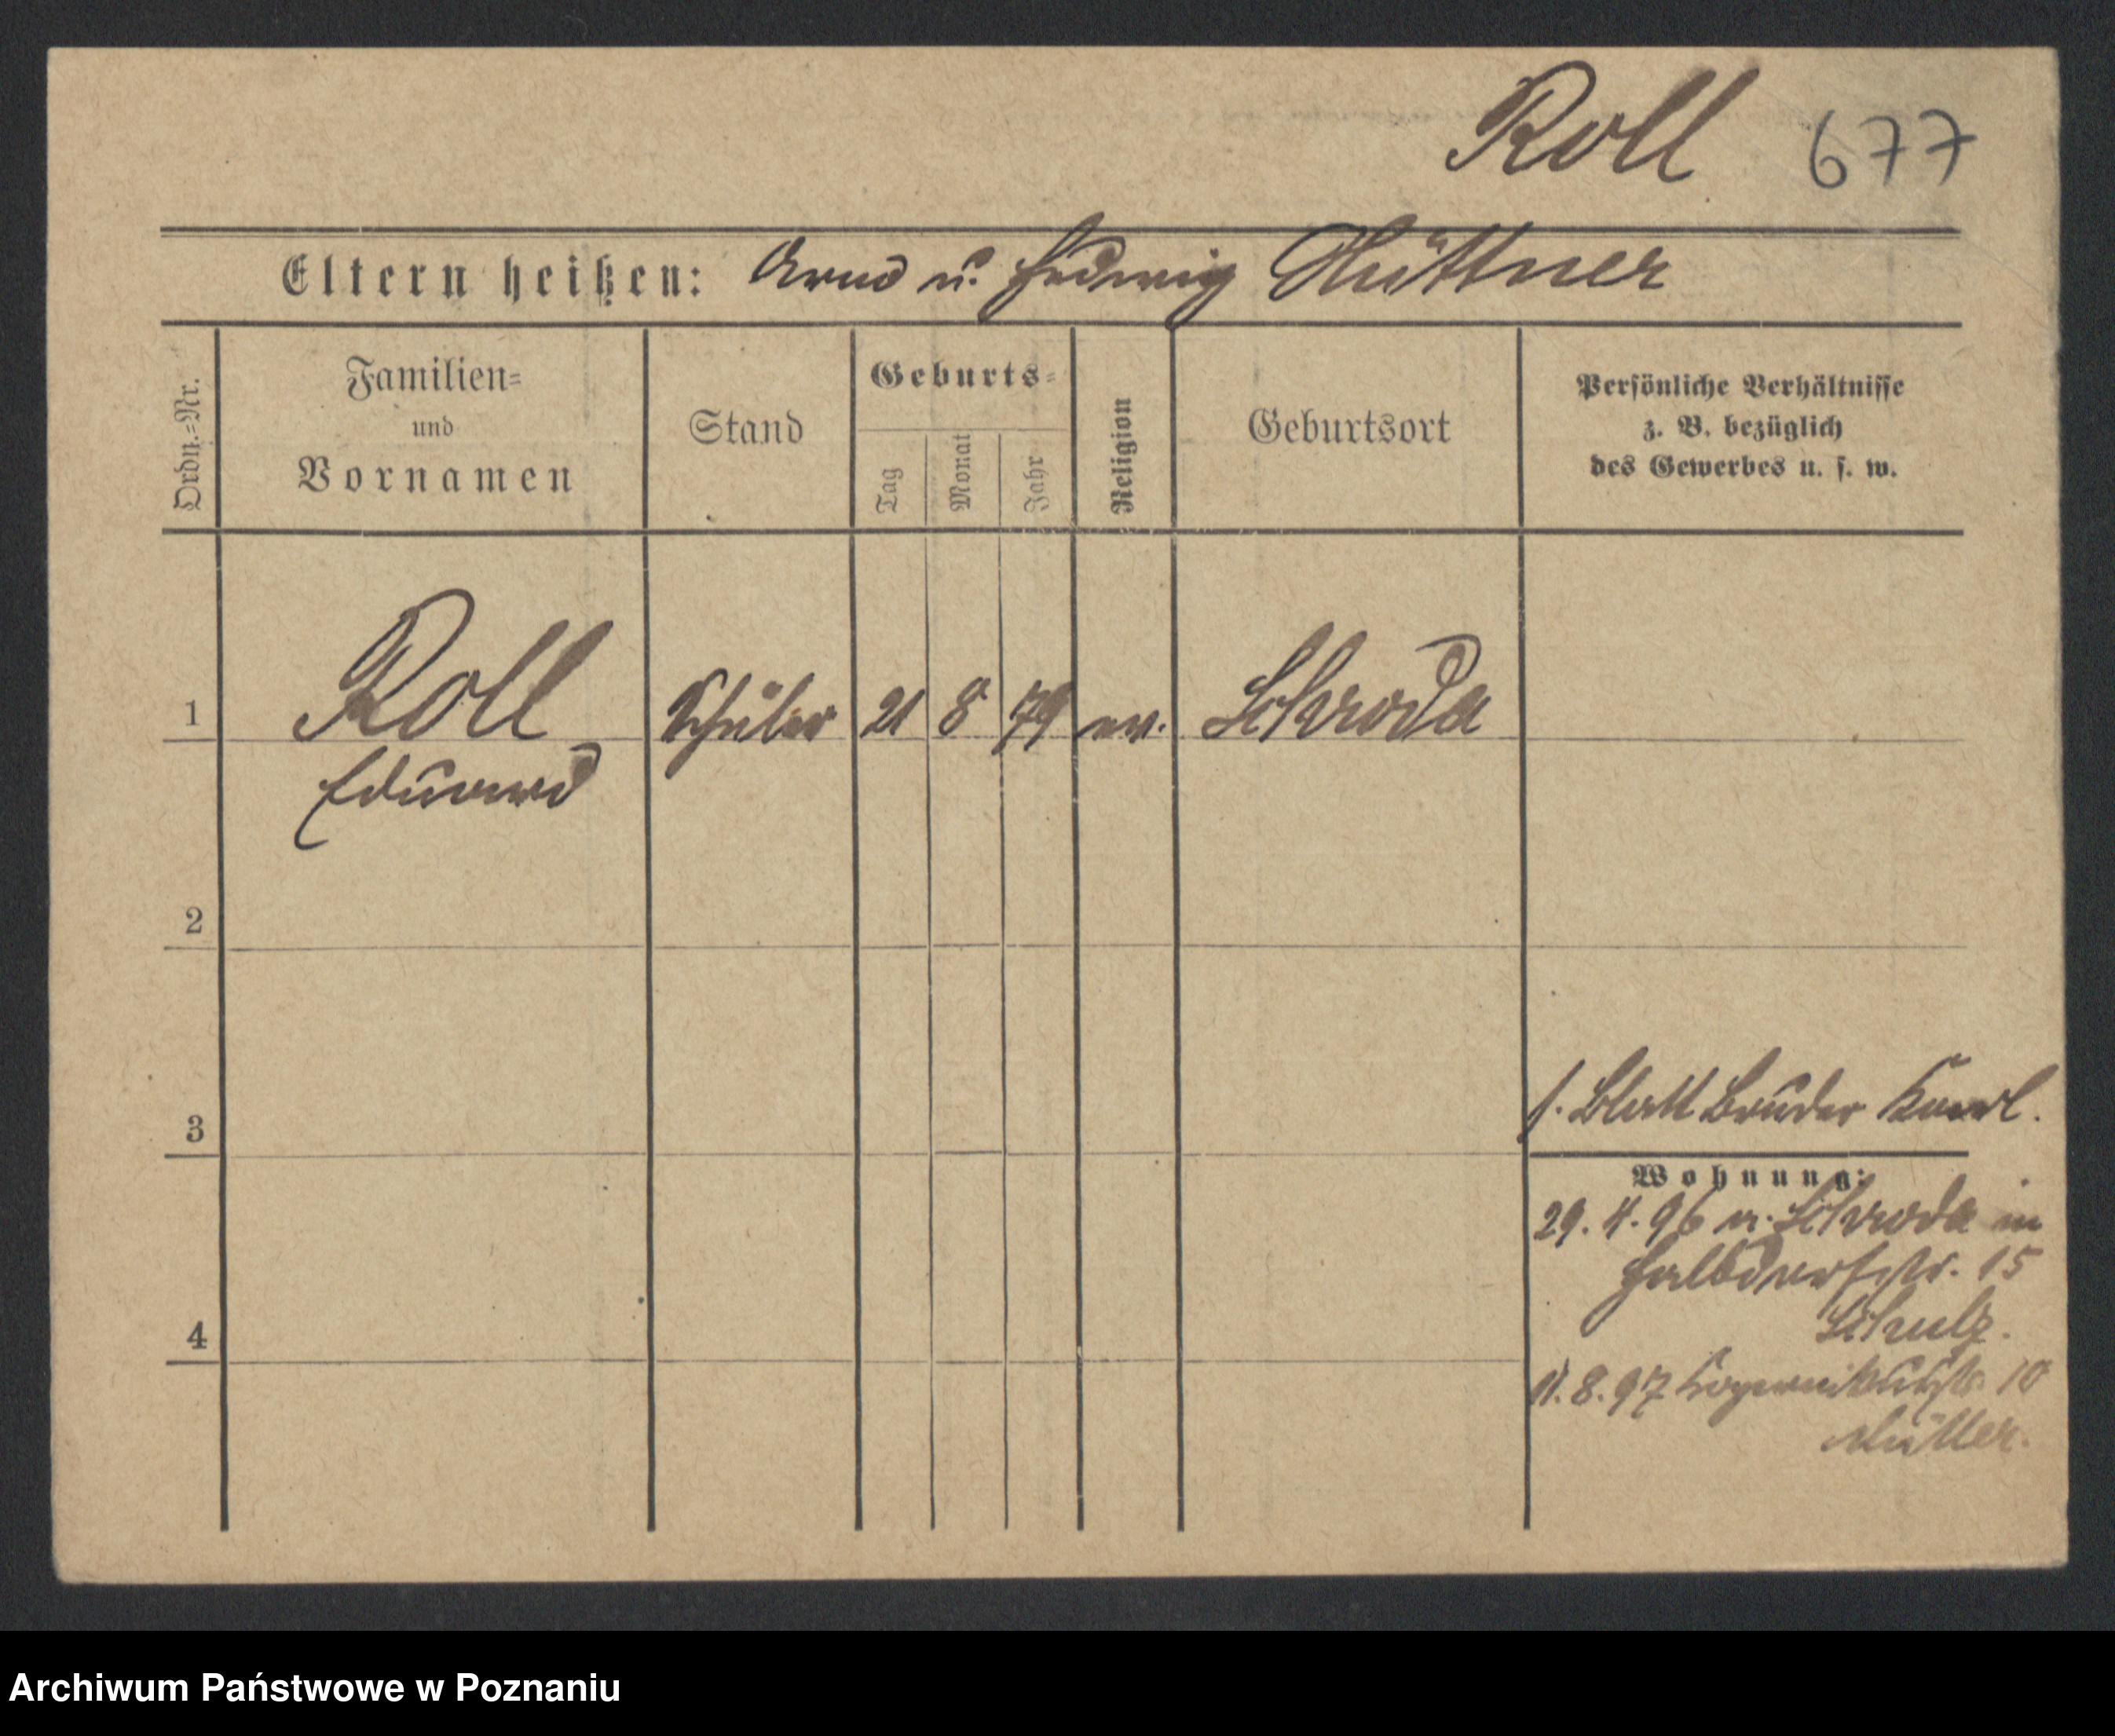 Roll 677
Eltern heißen: Arno u. Hedwig Hüttner
Ordn.=Nr.
Familien=
und
Vornamen
Stand
Geburts=
Tag
Monat
Jahr
Religion
Geburtsort
Persönliche Verhältnisse
z. B. bezüglich
des Gewerbes u. s. w.
1 Roll Schüler 21 8 79 ev. Schroda
Eduard
2
3
s. Blatt Bruder Karl.
Wohnung:
29. 4. 96 v. Schroda in
Halbdorfstr. 15
Schulz.
4
11. 8. 97 Kopernikusstr. 10
Müller.
Archiwum Państwowe w Poznaniu